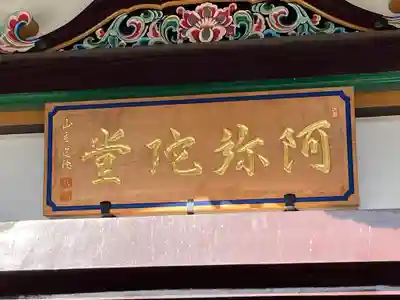 阿弥陀堂